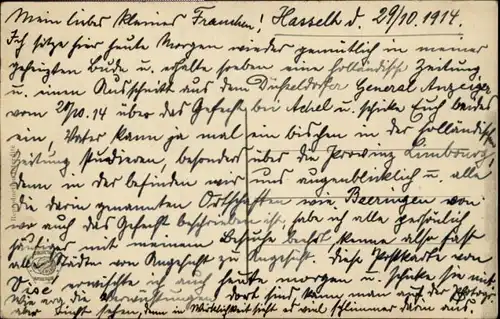 Mein liebes kleines Frauchen! Hasselt d. 29/10. 1914.
Ich sitze hier heute Morgen wieder gemütlich in meiner
geheizten Bude u. erhalte soeben eine holländische Zeitung
u. einen Ausschnitt aus dem Düsseldorfer General Anzeiger
vom 28/10.14 über das Gefecht bei Achel u. schike Euch beides
ein, Vater kann ja mal ein bischen in der holländischen
Zeitung studieren, besonders über die Provinz Limbourg
denn in der befinden wir uns augenblicklich u. alle
die darin genannten Ortschaften wie Beeringen von
wo auch das Gefecht beschrieben ist habe ich alle persönlich
mit meinem Besuche beehrt kenne also fast
alle Städten von Angesicht zu Angesicht. Diese Postkarte von
Visé erwischte ich auch heute morgen u. schicke sie mit.
Wie arg die Verwüstungen dort sind kann man auf der
aber nicht sehen, denn in Wirklichkeit sieht es viel schlimmer darin aus.